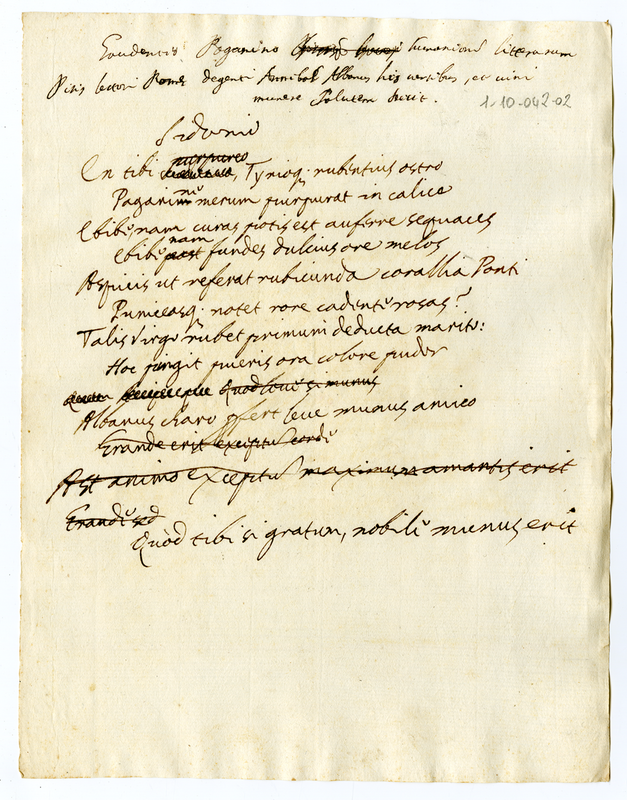 Gaudentio Paganino humaniorũ litterarum
Pisis lectori Romæ degenti Annibal Albanus his versibus, et vini
munere Salutem dicit.
1-10-042-02
En tibi purpureo, Tyrioq. rubentius ostro
Paganinũ merum purpurat in calice
Ebibe, nam curas potis est auferre sequaces
Ebibe nam fundes dulcius ore melos
Aspicis ut referat rubicunda corallia Ponti
Puniceasq. notet rore cadentẽ rosas?
Talis Virgo rubet primum deducta marito:
Hoc pingit pueris ora colore pudor
Quod levi si munus
Albanus charo offert leve munus amico
Grande erit exceptũ cordi
Ast animo exceptũ maximum amantis erit
Grande sed
Quòd tibi si gratum, nobile munus erit